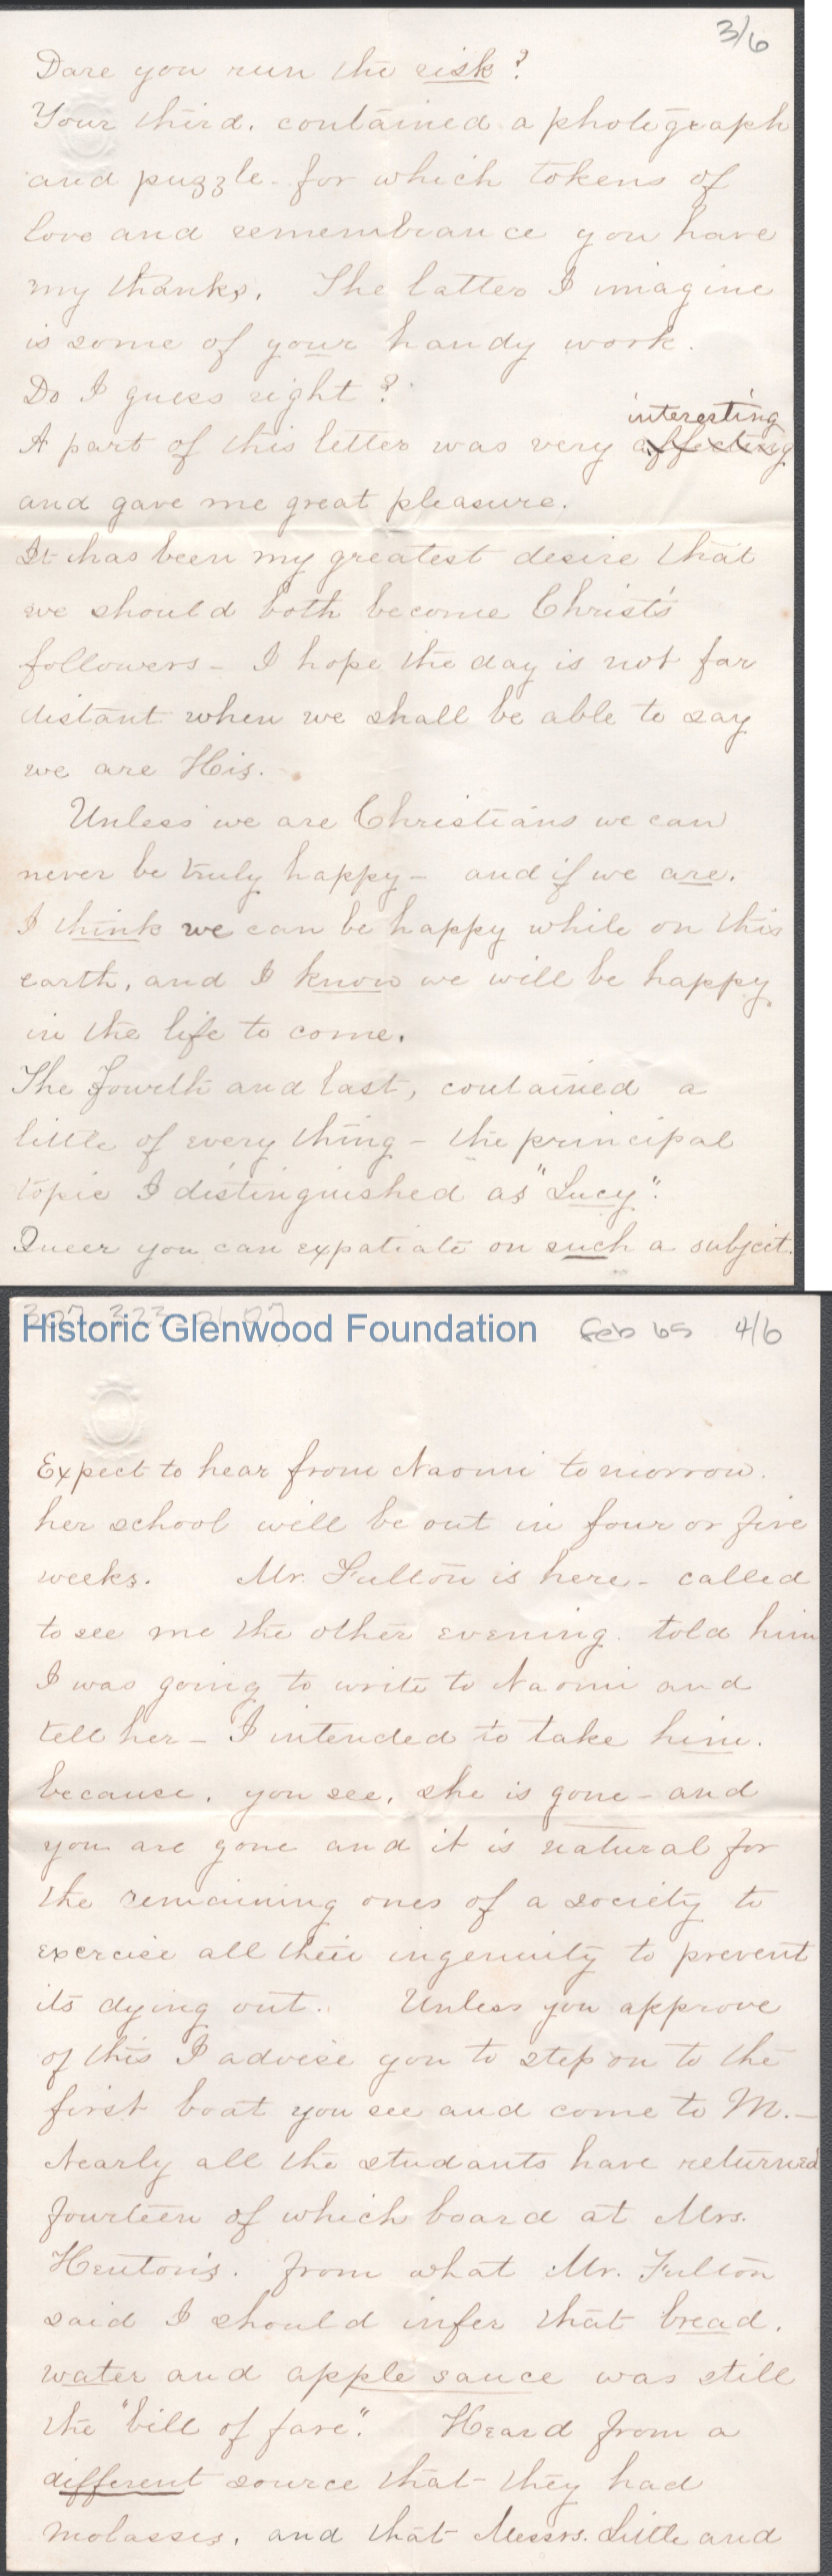 3/6
Dare you run the risk?
Your third, contained a photograph
and puzzle - for which tokens of
love and remembrance you have
my thanks. The latter I imagine
is some of your handy work.
Do I guess right?
interesting
A part of this letter was very affecting
and gave me great pleasure.
It has been my greatest desire that
we should both become Christ's
followers - I hope the day is not far
distant when we shall be able to say
we are His.
Unless we are Christians we can
never be truly happy - and if we are.
I think we can be happy while on this
earth, and I know we will be happy
in the life to come.
The Fourth and last, contained a
little of every thing - the principal
topic I distinguished as "Lucy".
Queer you can expatiate on such a subject.
307.323.01.07
Historic Glenwood Foundation Feb 65 4/6
Expect to hear from Naomi tomorrow.
her school will be out in four or five
weeks. Mr. Fulton is here - called
to see me the other evening. told him
I was going to write to Naomi and
tell her - I intended to take him.
because, you see, she is gone - and
you are gone and it is natural for
the remaining ones of a society to
exercise all their ingenuity to prevent
its dying out. Unless you approve
of this I advise you to step on to the
first boat you see and come to M. -
Nearly all the studants have returned
fourteen of which board at Mrs.
Henton's. From what Mr. Fulton
said I should infer that bread,
water and apple sauce was still
the "bill of fare". Heard from a
different source that they had
molasses, and that Messrs. Little and